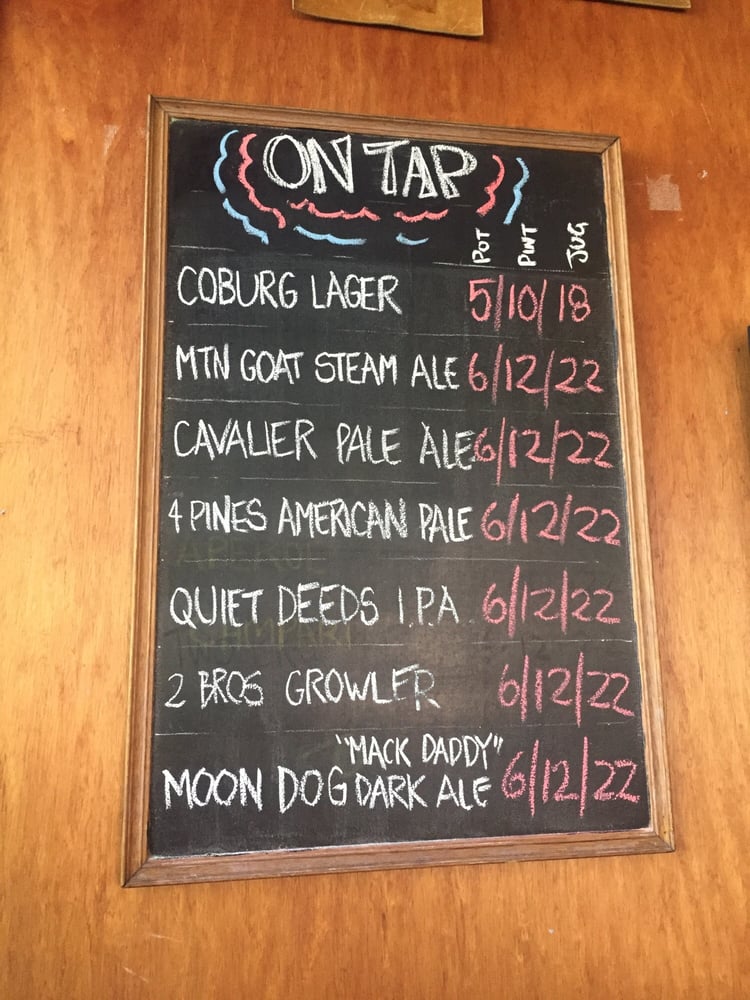 ON TAP
POT PINT JUG
COBURG LAGER 5/10/18
MTN GOAT STEAM ALE 6/12/22
CAVALIER PALE ALE 6/12/22
4 PINES AMERICAN PALE 6/12/22
QUIET DEEDS I.P.A 6/12/22
2 BROS GROWLER 6/12/22
"MACK DADDY"
MOON DOG DARK ALE 6/12/22